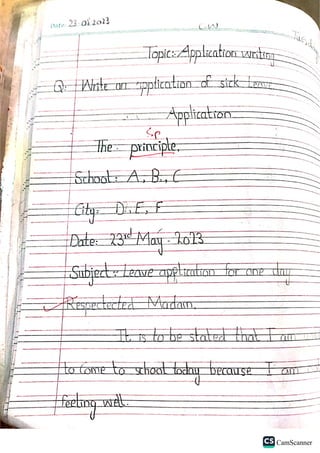 Date: 23.05.2023
C.W
Tuesday
Topic: Application writing
Q: Write an application of sick Leave
Application
Sp
The principle,
School: A, B, C
City: D, E, F
Date: 23rd May. 2023
Subject: Leave application for one day
Respectected Madam,
It is to be stated that I am
to come to school today because I am
feeling well.
CS CamScanner